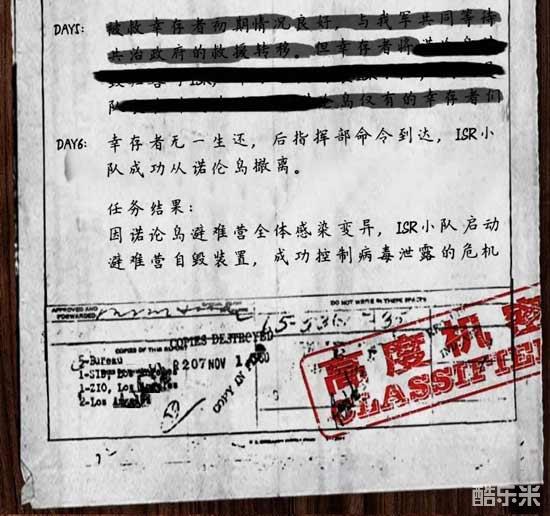 DAY5: 被救幸存者初期情况良好，与我军共同等待
共治政府的救援转移。但幸存者将
队 伦岛仅有的幸存者们
DAY6: 幸存者无一生还，后指挥部命令到达，ISR小
队成功从诺伦岛撤离。
任务结果：
因诺论岛避难营全体感染变异，ISR小队启动
避难营自毁装置，成功控制病毒泄露的危机
APPROVED AND
FORWARDED
DO NOT WRITE IN THESE SPACES
COPIES DESTROYED
COPIES OF THIS REPORT
5-Bureau
207 NOV 1
1-ZIO, Los Angeles
2-Los Angeles
COPY IN FILE
高度机密
CLASSIFIED
酷乐米